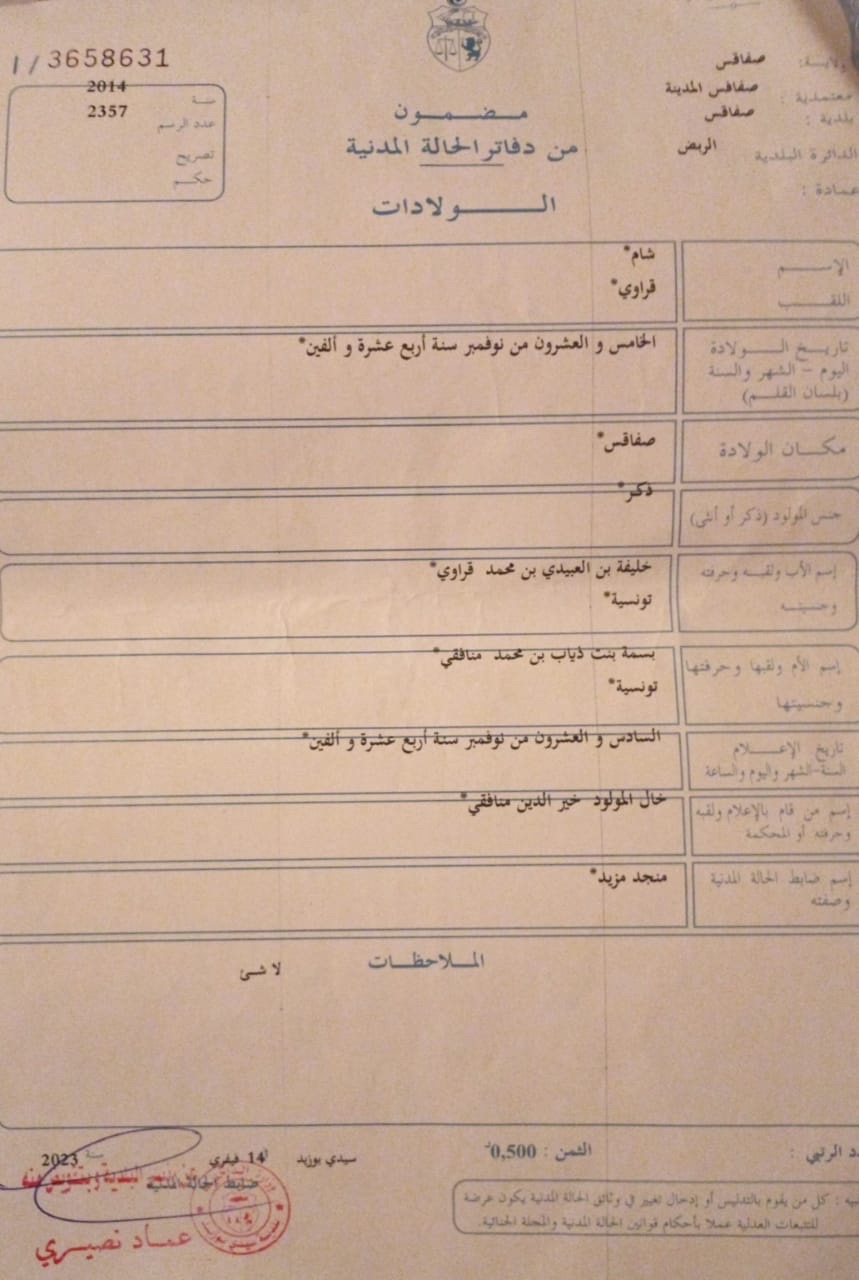 ولاية: صفاقس
معتمدية : صفاقس المدينة
بلدية : صفاقس
الدائرة البلدية الربض
عمادة :
مضمون
من دفاتر الحالة المدنية
الولادات
1/3658631
سنة 2014
عدد الرسم 2357
تصريح
حكم
الإسم شام*
اللقب قراوي*
تاريخ الولادة الخامس و العشرون من نوفمبر سنة أربع عشرة و ألفين*
اليوم – الشهر والسنة
(بلسان القلم)
مكان الولادة صفاقس*
جنس المولود (ذكر أو أنثى) ذكر*
إسم الأب ولقبه وحرفته خليفة بن العبيدي بن محمد قراوي*
وجنسيته تونسية*
إسم الأم ولقبها وحرفتها بسمة بنت ذياب بن محمد منافقي*
وجنسيتها تونسية*
تاريخ الإعلام السادس و العشرون من نوفمبر سنة أربع عشرة و ألفين*
السنة-الشهر واليوم والساعة
إسم من قام بالإعلام ولقبه خال المولود خير الدين منافقي*
وحرفته أو المحكمة
إسم ضابط الحالة المدنية منجد مزيد*
وصفته
الملاحظات
لا شئ
الرتبي :
الثمن : 0,500د
سيدي بوزيد 14 فيفري سنة 2023
ضابط الحالة المدنية
البلدية وبتفويض منه
عماد نصيري
كل من يقوم بالتدليس أو إدخال تغيير في وثائق الحالة المدنية يكون عرضة
للتتبعات العدلية عملا بأحكام قوانين الحالة المدنية والمجلة الجنائية.